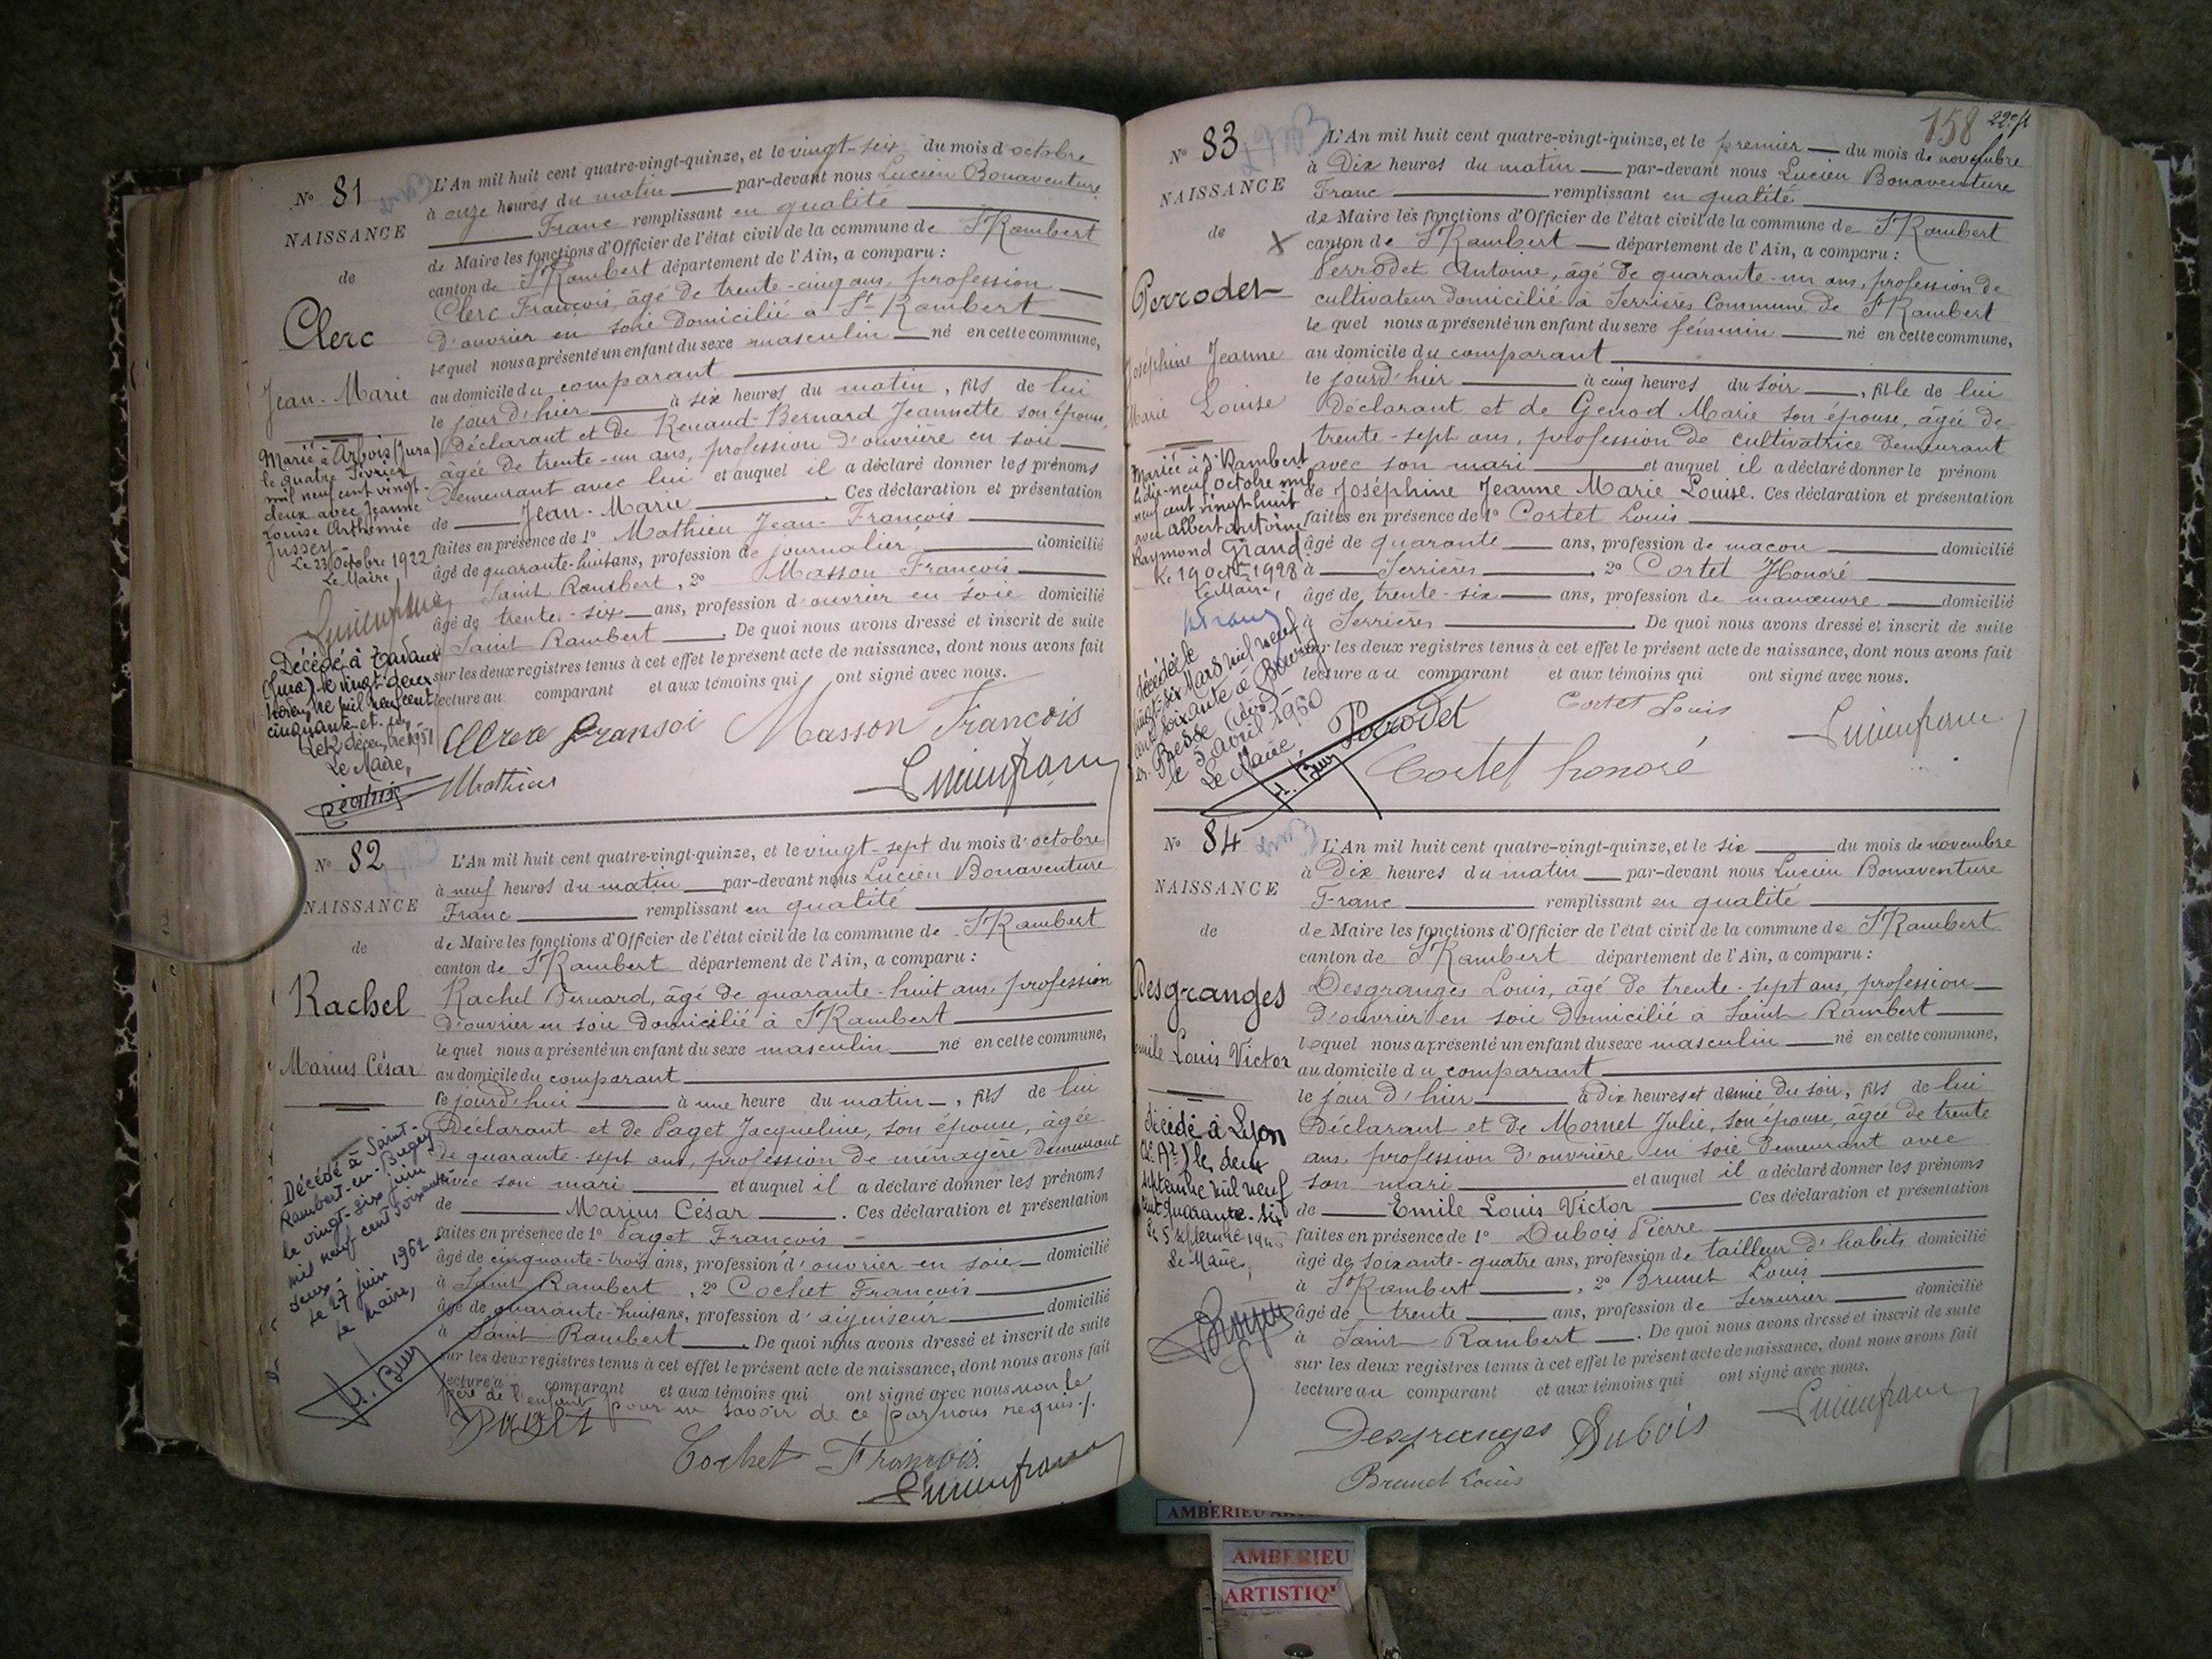 N° 81
NAISSANCE
de
Clerc
Jean-Marie
Marié à Arbois (Jura)
le quatre Février
mil neuf cent vingt-
deux avec Jeanne
Louise Arthémie
Jussey
Le 23 Octobre 1922
Le Maire
Décédé à Tavaux
(Jura) le vingt deux
novembre mil neuf cent
cinquante et un
Le 2 décembre 1951
Le Maire,
L'An mil huit cent quatre-vingt-quinze, et le vingt-six du mois d'octobre
à onze heures du matin par-devant nous Lucien Bonaventure
Franc remplissant en qualité
de Maire les fonctions d'Officier de l'état civil de la commune de St Rambert
canton de St Rambert département de l'Ain, a comparu :
Clerc François, âgé de trente-cinq ans, profession
d'ouvrier en soie domicilié à St Rambert
lequel nous a présenté un enfant du sexe masculin né en cette commune,
au domicile du comparant
le jour d'hier à six heures du matin, fils de lui
Déclarant et de Renaud-Bernard Jeannette son épouse,
âgée de trente-un ans, profession d'ouvrière en soie
demeurant avec lui et auquel il a déclaré donner les prénoms
de Jean-Marie. Ces déclaration et présentation
faites en présence de 1° Mathieu Jean-François
âgé de quarante-huit ans, profession de journalier domicilié
à Saint Rambert, 2° Masson François
âgé de trente-six ans, profession d'ouvrier en soie domicilié
à Saint Rambert. De quoi nous avons dressé et inscrit de suite
sur les deux registres tenus à cet effet le présent acte de naissance, dont nous avons fait
lecture au comparant et aux témoins qui ont signé avec nous.
Masson François
Mathieu
N° 82
NAISSANCE
de
Rachel
Marius César
Décédé à Saint-
Rambert-en-Bugey
le vingt-six juin
mil neuf cent soixante-
deux-
Le 27 juin 1962
Le Maire,
L'An mil huit cent quatre-vingt-quinze, et le vingt-sept du mois d'octobre
à neuf heures du matin par-devant nous Lucien Bonaventure
Franc remplissant en qualité
de Maire les fonctions d'Officier de l'état civil de la commune de St Rambert
canton de St Rambert département de l'Ain, a comparu :
Rachel Bernard, âgé de quarante-huit ans, profession
d'ouvrier en soie domicilié à St Rambert
lequel nous a présenté un enfant du sexe masculin né en cette commune,
au domicile du comparant
le jourd'hui à une heure du matin, fils de lui
Déclarant et de Paget Jacqueline, son épouse, âgée
de quarante-sept ans, profession de ménagère demeurant
avec son mari et auquel il a déclaré donner les prénoms
de Marius César. Ces déclaration et présentation
faites en présence de 1° Paget François
âgé de cinquante-trois ans, profession d'ouvrier en soie domicilié
à Saint Rambert, 2° Cochet François
âgé de quarante-huit ans, profession d'aiguiseur domicilié
à Saint Rambert. De quoi nous avons dressé et inscrit de suite
sur les deux registres tenus à cet effet le présent acte de naissance, dont nous avons fait
lecture à comparant et aux témoins qui ont signé avec nous non le
père de l'enfant pour ne savoir de ce par nous requis./.
Paget
Cochet François
N° 83
NAISSANCE
de
Perrodet
Joséphine Jeanne
Marie Louise
Mariée à St Rambert
le dix-neuf Octobre mil
neuf cent vingt huit
avec Albert Antoine
Raymond Grand
Le 19 Octre 1928
Le Maire,
décédée le
vingt-six Mars mil neuf
cent soixante à Bourg
en Bresse
le 5 avril 1960
Le Maire,
158
L'An mil huit cent quatre-vingt-quinze, et le premier du mois de novembre
à Dix heures du matin par-devant nous Lucien Bonaventure
Franc remplissant en qualité
de Maire les fonctions d'Officier de l'état civil de la commune de St Rambert
canton de St Rambert département de l'Ain, a comparu :
Perrodet Antoine, âgé de quarante-un ans, profession de
cultivateur domicilié à Serrières Commune de St Rambert
lequel nous a présenté un enfant du sexe féminin né en cette commune,
au domicile du comparant
le jourd'hier à cinq heures du soir, fille de lui
Déclarant et de Genod Marie son épouse, âgée de
trente-sept ans, profession de cultivatrice demeurant
avec son mari et auquel il a déclaré donner le prénom
de Joséphine Jeanne Marie Louise. Ces déclaration et présentation
faites en présence de 1° Cortet Louis
âgé de quarante ans, profession de maçon domicilié
à Serrières 2° Cortet Honoré
âgé de trente-six ans, profession de manœuvre domicilié
à Serrières. De quoi nous avons dressé et inscrit de suite
sur les deux registres tenus à cet effet le présent acte de naissance, dont nous avons fait
lecture au comparant et aux témoins qui ont signé avec nous.
Cortet Louis
Perrodet
Cortet honoré
N° 84
NAISSANCE
de
Desgranges
Emile Louis Victor
Décédé à Lyon
le deux
septembre mil neuf
cent quarante-six
Le Maire,
L'An mil huit cent quatre-vingt-quinze, et le six du mois de novembre
à Dix heures du matin par-devant nous Lucien Bonaventure
Franc remplissant en qualité
de Maire les fonctions d'Officier de l'état civil de la commune de St Rambert
canton de St Rambert département de l'Ain, a comparu :
Desgranges Louis, âgé de trente-sept ans, profession
d'ouvrier en soie domicilié à Saint Rambert
lequel nous a présenté un enfant du sexe masculin né en cette commune,
au domicile du comparant
le jour d'hier à dix heures et demie du soir, fils de lui
Déclarant et de Mornet Julie, son épouse, âgée de trente
ans, profession d'ouvrière en soie demeurant avec
son mari et auquel il a déclaré donner les prénoms
de Emile Louis Victor Ces déclaration et présentation
faites en présence de 1° Dubois Pierre
âgé de soixante-quatre ans, profession de tailleur d'habits domicilié
à St Rambert, 2° Brunet Louis
âgé de trente ans, profession de Serrurier domicilié
à Saint Rambert. De quoi nous avons dressé et inscrit de suite
sur les deux registres tenus à cet effet le présent acte de naissance, dont nous avons fait
lecture au comparant et aux témoins qui ont signé avec nous.
Desgranges Dubois
Brunet Louis
AMBERIEU
AMBERIEU
ARTISTIQ